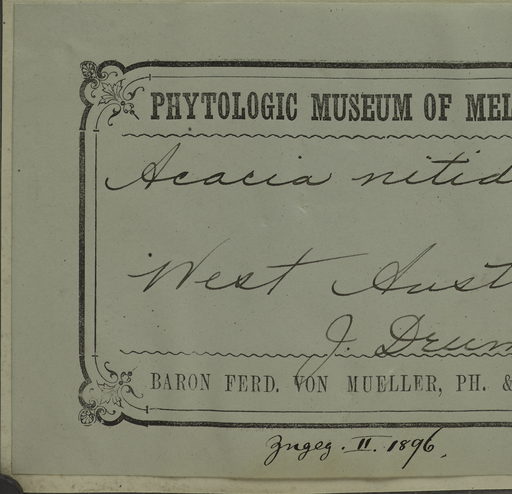 PHYTOLOGIC MUSEUM OF MEL
Acacia nitid
West Aust
J. Drum
BARON FERD. VON MUELLER, PH. &
Zngeg. II. 1896.